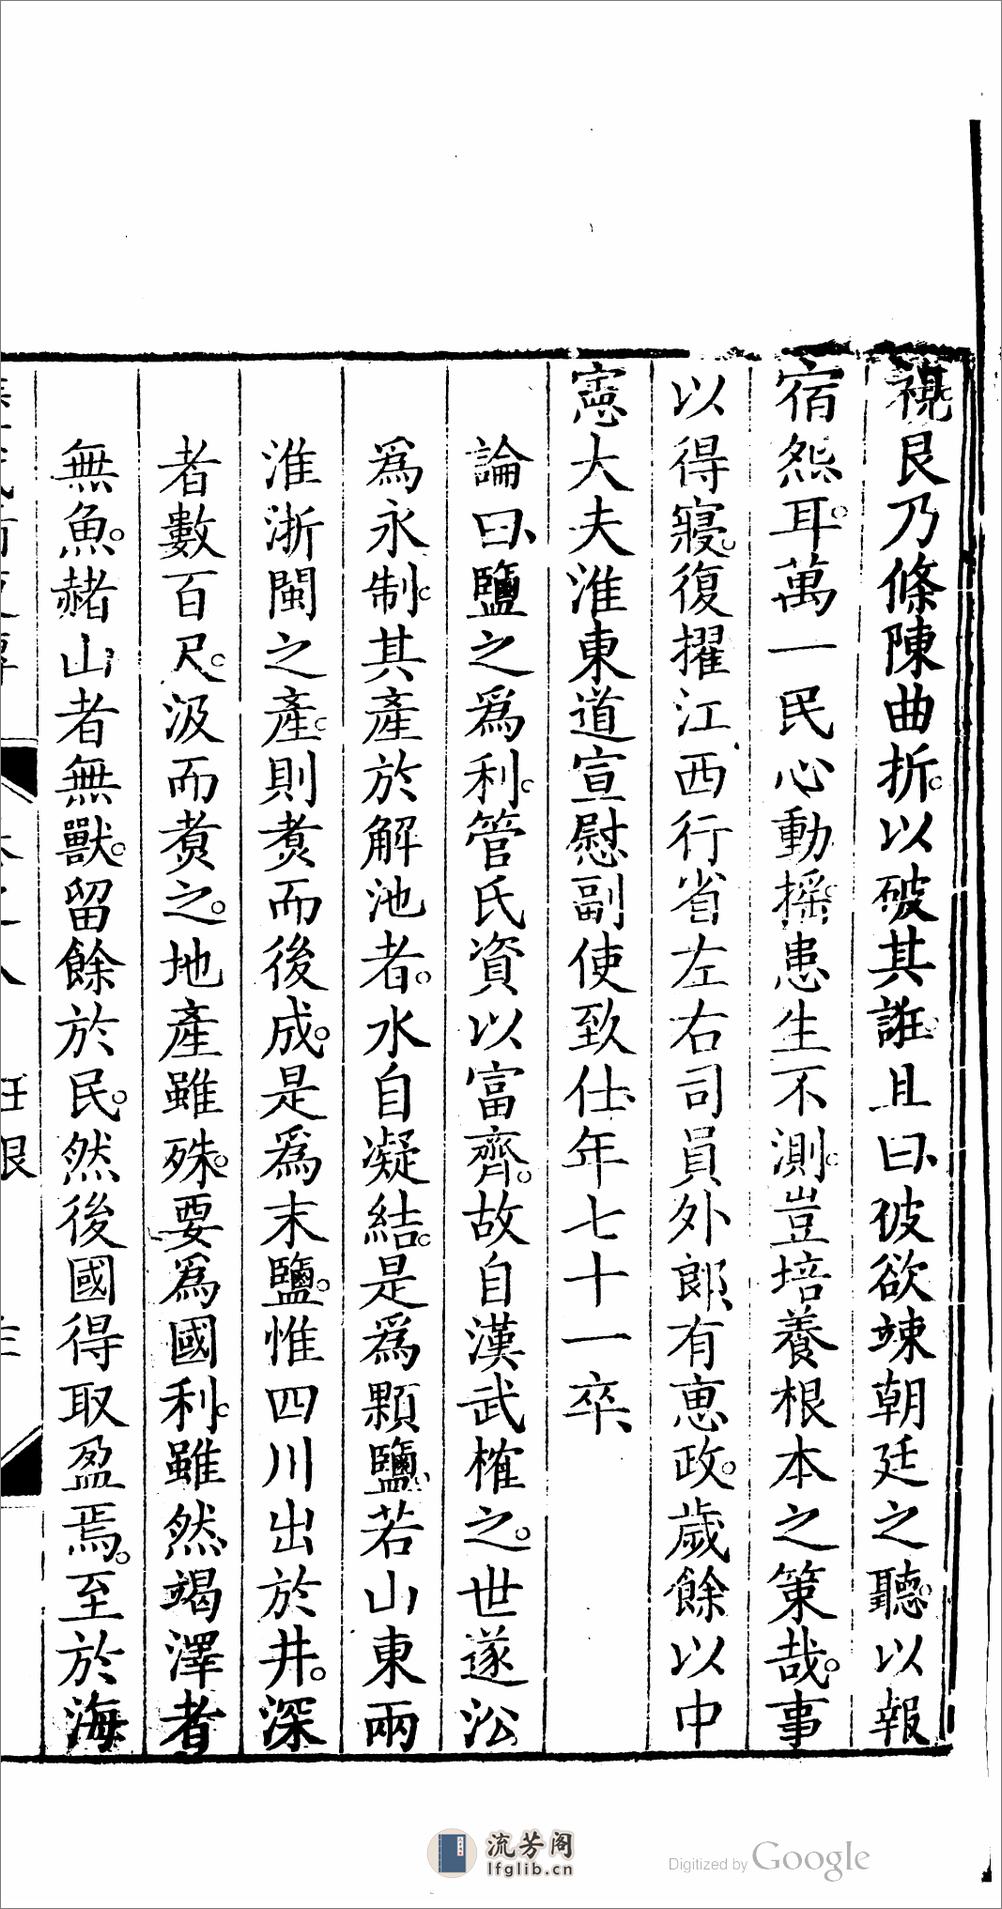 視艮乃條陳曲折以破其誑且曰彼欲竦朝廷之聽以報
宿怨耳萬一民心動搖患生不測豈培養根本之策哉事
以得寢復擢江西行省左右司員外郎有恵政歲餘以中
憲大夫淮東道宣慰副使致仕年七十一卒
論曰鹽之爲利管氏資以富齊故自漢武榷之世遂㳂
爲永制其產於解池者水自凝結是爲顆鹽若山東兩
淮浙閩之產則煑而後成是爲末鹽惟四川出於井深
者數百尺汲而煑之地產雖殊要爲國利雖然竭澤者
無魚赭山者無獸留餘於民然後國得取盈焉至於海
流芳阁
lfglib.cn
Digitized by Google